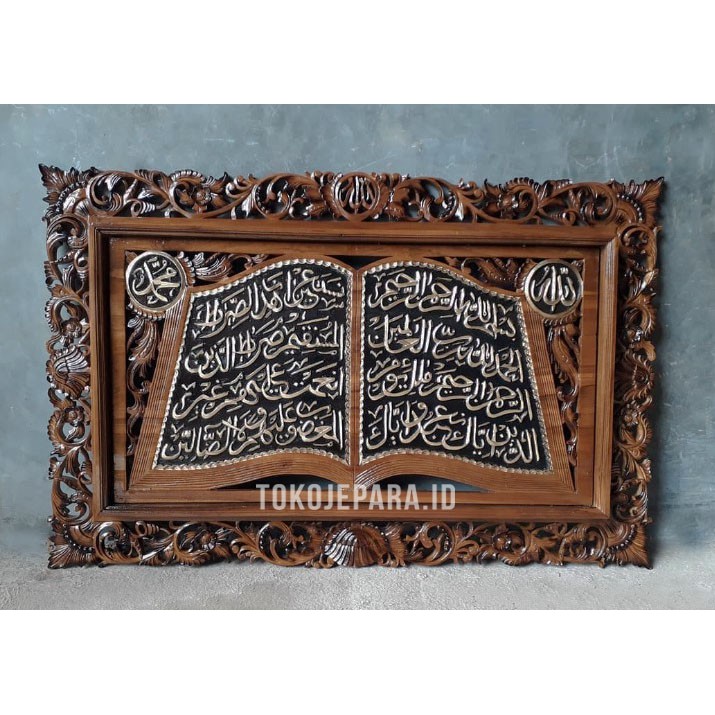 الله
الله
محمد
بسم الله الرحمن الرحيم
الحمد لله رب العالمين
الرحمن الرحيم ملك يوم
الدين إياك نعبد وإياك
نستعين اهدنا الصراط
المستقيم صراط الذين
أنعمت عليهم غير
المغضوب عليهم ولا الضالين
TOKOJEPARA.ID